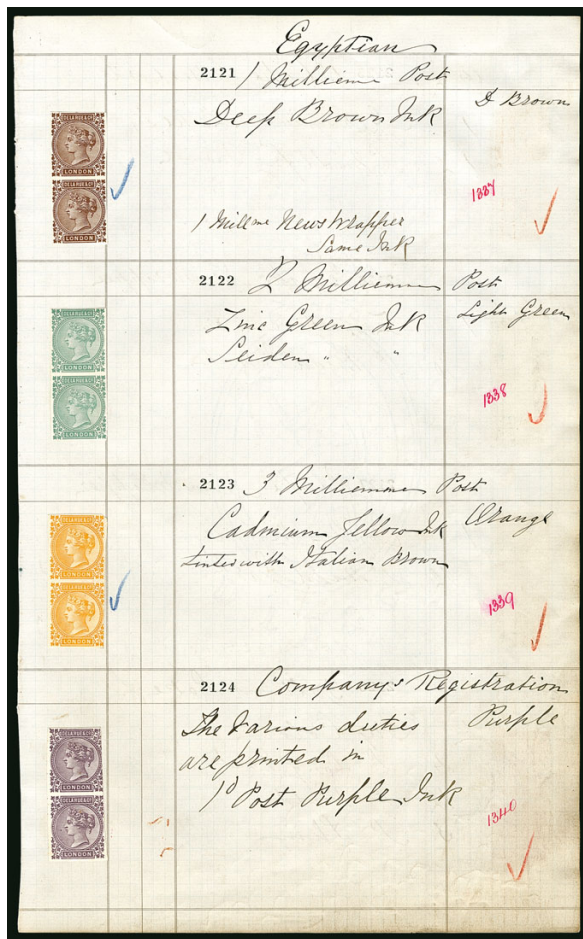 Egyptian
2121 1 Millieme Post
Deep Brown Ink D Brown
DE LA RUE & Co
LONDON
DE LA RUE & Co
LONDON
1337
1 Millme News Wrapper
Same Ink
2122 2 Millieme Post
Zinc Green Ink Light Green
Seiden " "
DE LA RUE & Co
LONDON
DE LA RUE & Co
LONDON
1338
2123 3 Milliemme Post
Cadmium Yellow Ink Orange
tinted with Italian Brown
DE LA RUE & Co
LONDON
DE LA RUE & Co
LONDON
1339
2124 Company's Registration
The various duties Purple
are printed in
1d Post Purple Ink
DE LA RUE & Co
LONDON
DE LA RUE & Co
LONDON
1340